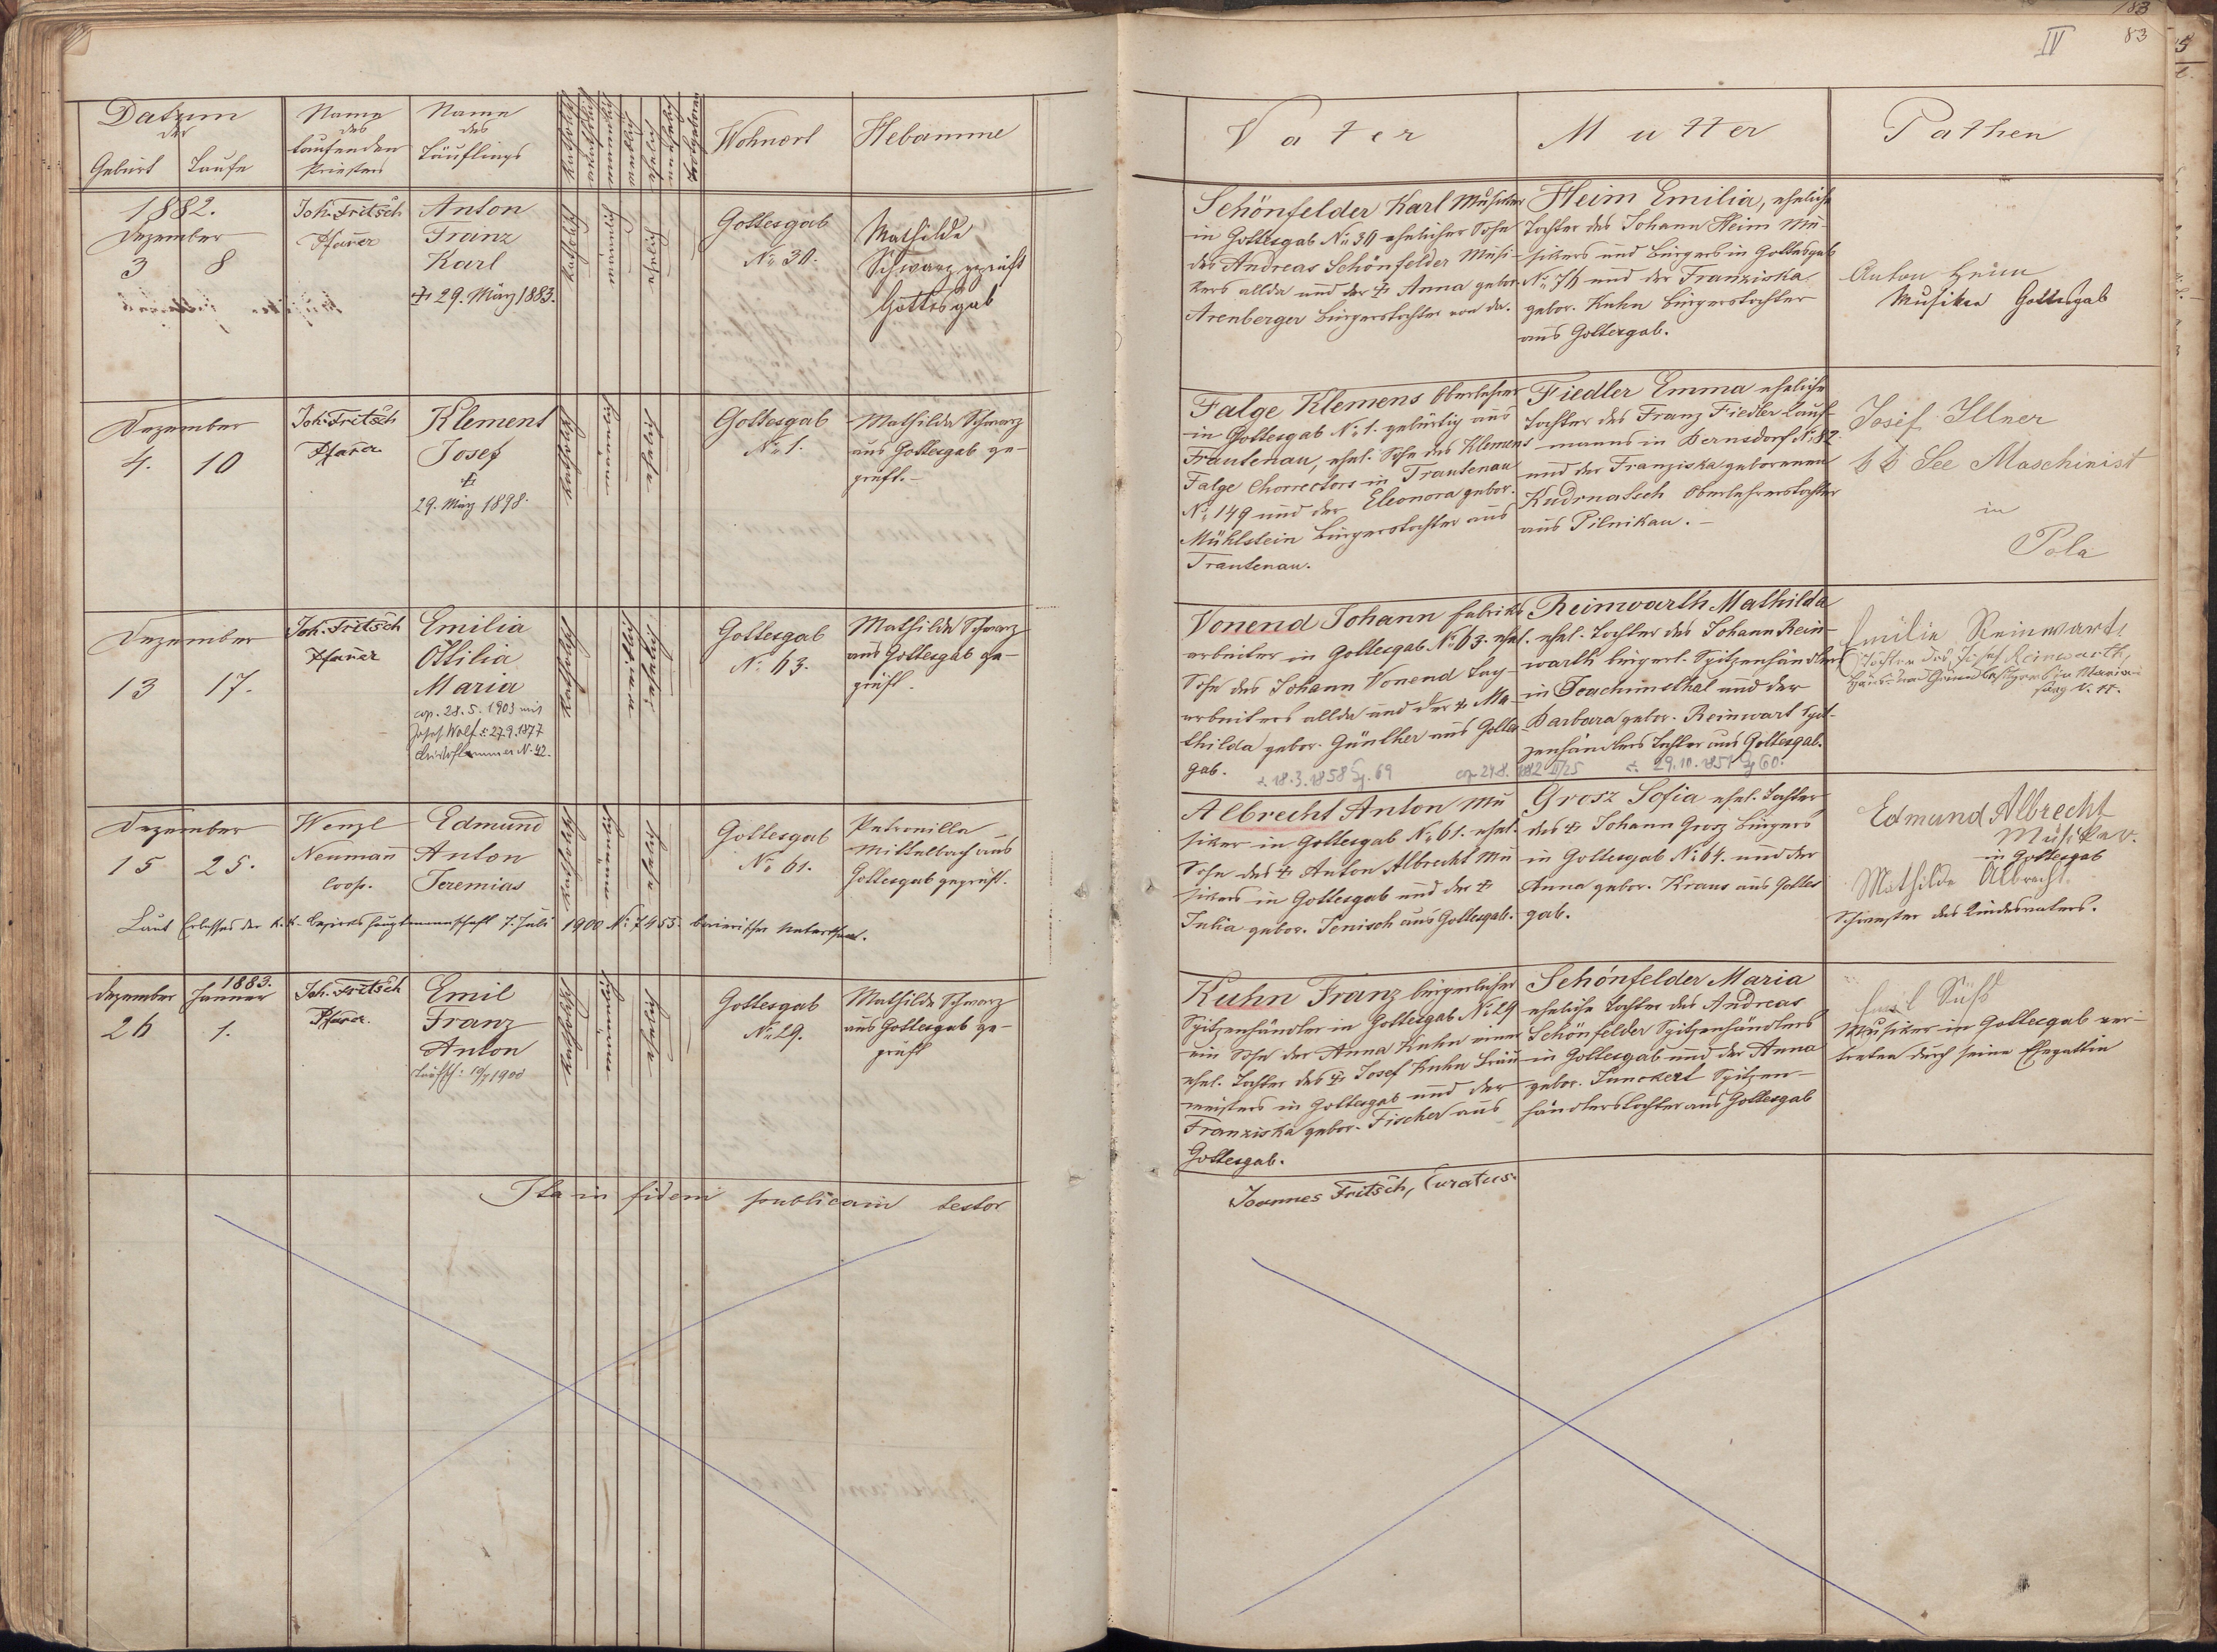 183
IV 83
Datum
der
Geburt Taufe
Name
des
taufenden
Priesters
Name
des
Täuflings
katholisch
akatholisch
männlich
weiblich
ehelich
unehelich
Todtgeboren
Wohnort
Hebamme
Vater
Mutter
Pathen
1882.
Dezember
3 8
Joh. Fritsch
Pfarrer
Anton
Franz
Karl
† 29. März 1883.
katholisch
männlich
ehelich
Gottesgab
No 30.
Mathilde
Schwarz geprüft
Gottesgab
Schönfelder Karl Musiker
in Gottesgab No 30 ehelicher Sohn
des Andreas Schönfelder Musi-
kers allda und der † Anna gebor.
Arenberger Bürgerstochter von da.
Heim Emilia, eheliche
Tochter des Johann Heim Mu-
sikers und Bürgers in Gottesgab
No 76 und der Franziska
gebor. Kuhn Bürgerstochter
aus Gottesgab.
Anton Heim
Musiker Gottesgab
Dezember
4. 10
Joh. Fritsch
Pfarrer
Klement
Josef
†
29. März 1898.
katholisch
männlich
ehelich
Gottesgab
No 1.
Mathilde Schwarz
aus Gottesgab ge-
prüft.-
Falge Klemens Oberlehrer
in Gottesgab No 1. gebürtig aus
Trautenau, ehel. Sohn des Klemens
Falge Chorrectors in Trautenau
No 149 und der Eleonora gebor.
Mühlstein Bürgerstochter aus
Trautenau.
Fiedler Emma eheliche
Tochter des Franz Fiedler Kauf-
manns in Bernsdorf No 82.
und der Franziska geborenen
Kudrnatsch Oberlehrerstochter
aus Pilnikau.-
Josef Illner
k k See Maschinist
in
Pola
Dezember
13 17.
Joh. Fritsch
Pfarrer
Emilia
Ottilia
Maria
cop. 28. 5. 1903 mit
Josef Wolf *: 27.9.1877
No 42.
katholisch
weiblich
ehelich
Gottesgab
No 63.
Mathilde Schwarz
aus Gottesgab ge-
prüft.
Vonend Johann Fabriks
arbeiter in Gottesgab No 63. ehel.
Sohn des Johann Vonend Tag-
arbeiters allda und der † Ma-
thilda gebor. Günther aus Gottes
gab.
*. 18.3.1858 69
cop. 24.8. 1882 II/25
Reinwarth Mathilda
ehel. Tochter des Johann Rein-
warth bürgerl. Spitzenhändlers
in Joachimsthal und der
Barbara gebor. Reinwart Spit-
zenhändlers Tochter aus Gottesgab.
*. 29.10.1857 60.
Emilie Reinwart
Tochter des Josef Reinwarth,
Dezember
15 25.
Wenzl
Neumann
Coop.
Edmund
Anton
Jeremias
katholisch
männlich
ehelich
Gottesgab
No 61.
Petronilla
Mittelbach aus
Gottesgab geprüft.
Laut Erlasses der k.k. Bezirkshauptmannschaft 7. Juli 1900 No 7455
Albrecht Anton Mu
siker in Gottesgab No 61. ehel.
Sohn des † Anton Albrecht Mu
sikers in Gottesgab und der †
Julia gebor. Jenisch aus Gottesgab.
Grosz Sofia ehel. Tochter
des † Johann Grosz Bürgers
in Gottesgab No 64. und der
Anna gebor. Kraus aus Gottes
gab.
Edmund Albrecht
Musiker.
in Gottesgab
Mathilde Albrecht
Schwester des Kindesvaters.
Dezember
26
1883.
Jänner
1.
Joh. Fritsch
Pfarrer.
Emil
Franz
Anton
Taufsch: 19/7 1900
katholisch
männlich
ehelich
Gottesgab
No 29.
Mathilde Schwarz
aus Gottesgab ge-
prüft
Kuhn Franz bürgerlicher
Spitzenhändler in Gottesgab No 29
ein Sohn der Anna Kuhn einer
ehel. Tochter des † Josef Kuhn Bräu
meisters in Gottesgab und der
Franziska gebor. Fischer aus
Gottesgab.
Schönfelder Maria
eheliche Tochter des Andreas
Schönfelder Spitzenhändlers
in Gottesgab und der Anna
gebor. Junckert Spitzen-
händlerstochter aus Gottesgab
Emil Süß
Musiker in Gottesgab ver-
treten durch seine Ehegattin
Ita in fidem publicam testor
Joannes Fritsch, Curatus.